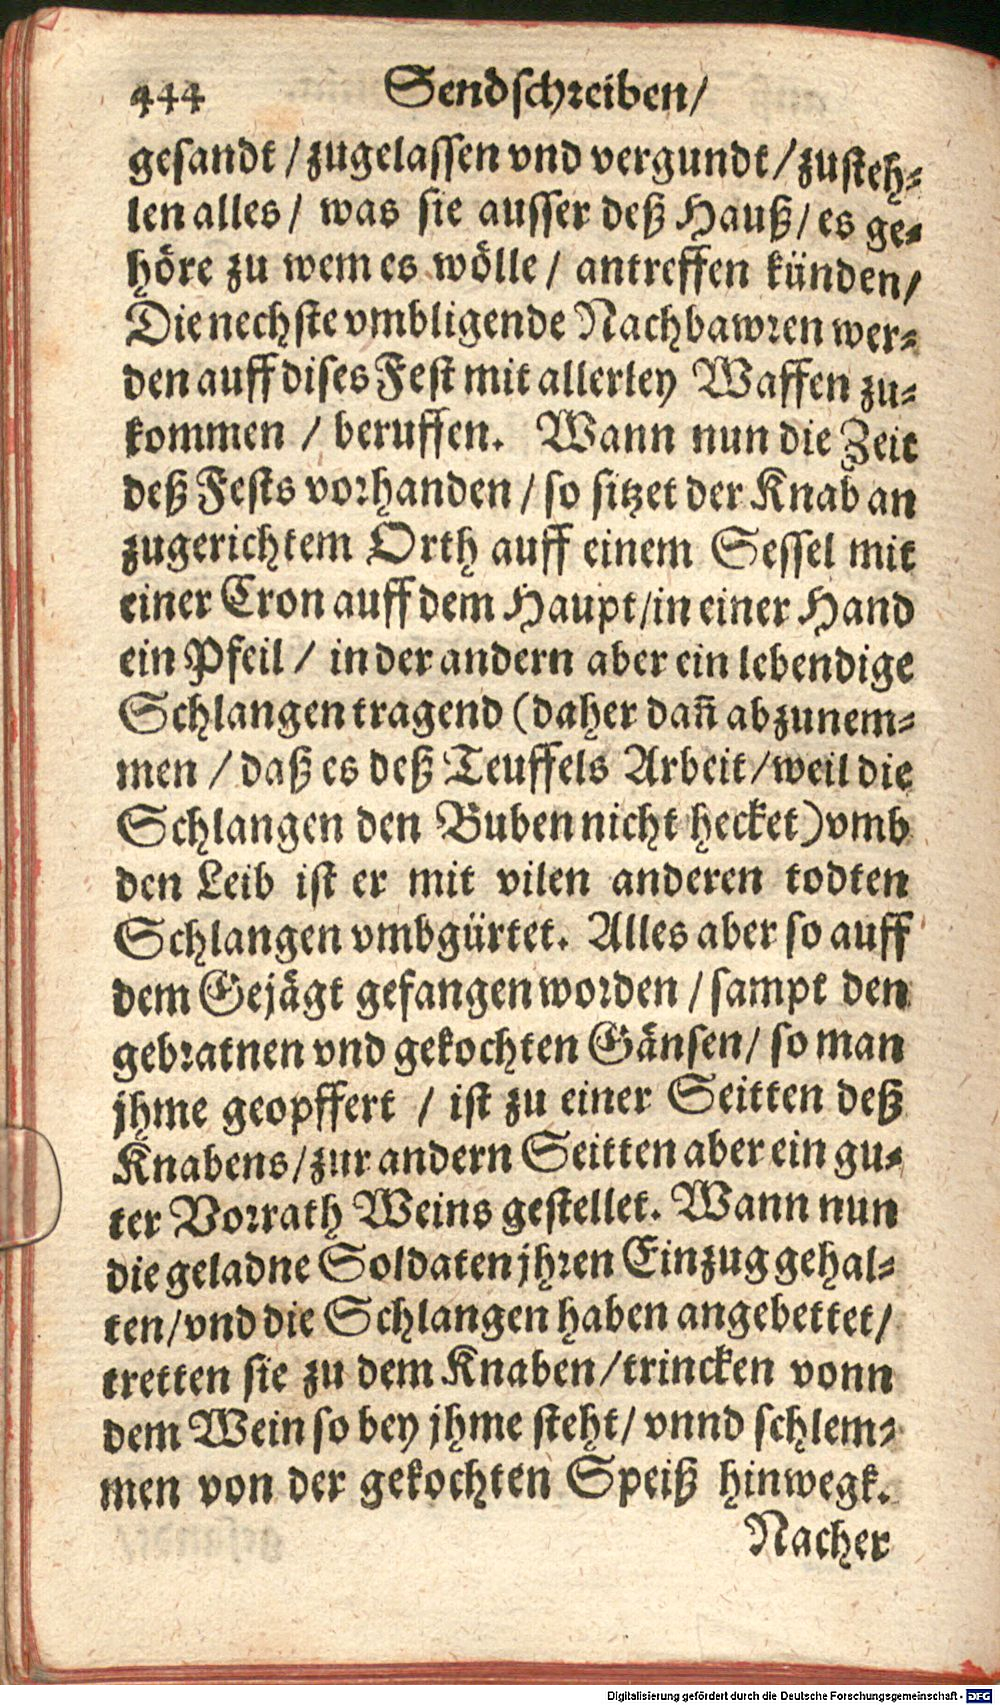 444 Sendschreiben/
gesandt / zugelassen vnd vergundt / zusteh⸗
len alles / was sie ausser deß Hauß / es ge⸗
höre zu wem es wölle / antreffen künden /
Die nechste vmbligende Nachbawren wer⸗
den auff dises Fest mit allerley Waffen zu⸗
kommen / beruffen. Wann nun die Zeit
deß Fests vorhanden / so sitzet der Knab an
zugerichtem Orth auff einem Sessel mit
einer Cron auff dem Haupt / in einer Hand
ein Pfeil / in der andern aber ein lebendige
Schlangen tragend (daher dañ abzunem⸗
men / daß es deß Teuffels Arbeit / weil die
Schlangen den Buben nicht hecket) vmb
den Leib ist er mit vilen anderen todten
Schlangen vmbgürtet. Alles aber so auff
dem Gejägt gefangen worden / sampt den
gebratnen vnd gekochten Gänsen / so man
jhme geopffert / ist zu einer Seitten deß
Knabens / zur andern Seitten aber ein gu⸗
ter Vorrath Weins gestellet. Wann nun
die geladne Soldaten jhren Einzug gehal⸗
ten / vnd die Schlangen haben angebettet /
tretten sie zu dem Knaben / trincken vonn
dem Wein so bey jhme steht / vnnd schlem⸗
men von der gekochten Speiß hinwegk.
Nacher
Digitalisierung gefördert durch die Deutsche Forschungsgemeinschaft - DFG